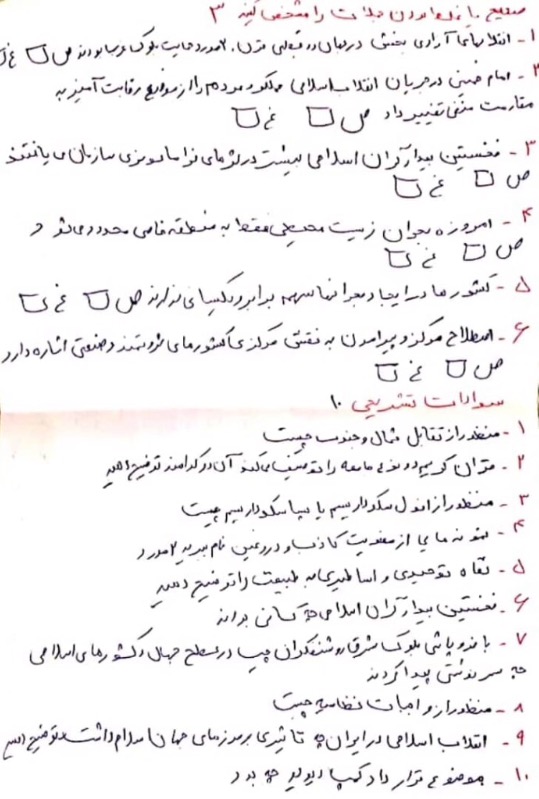 صحیح یا غلط بودن جملات را مشخص کنید ۳
۱- انقلاب‌های آزادی بخش در جهان دو قطبی قرن ۲۰ مورد حمایت بلوک غرب بودند ص غ
۲- امام خمینی در جریان انقلاب اسلامی عملکرد مردم را از مواضع رقابت آمیز به
مقاومت منفی تغییر داد ص غ
۳- نخستین بیدارگران اسلامی بیشتر در لژهای فراماسونری سازمان می یافتند
ص غ
۴- امروزه بحران زیست محیطی فقط به منطقه خاصی محدود می شود
ص غ
۵- کشورها در ایجاد بحرانها سهم برابر و یکسانی ندارند ص غ
۶- اصطلاح مرکز و پیرامون به نقش مرکزی کشورهای ثروتمند و صنعتی اشاره دارد
ص غ
سوالات تشریحی ۱۰
۱- منظور از تقابل شمال و جنوب چیست
۲- قرآن کریم دو نوع جامعه را توصیف میکند آن دو کدامند توضیح دهید
۳- منظور از افول سکولاریسم یا پسا سکولاریسم چیست
۴- نمونه هایی از معنویت کاذب و دروغین نام ببرید ۲مورد
۵- نگاه توحیدی و اساطیری به طبیعت را توضیح دهید
۶- نخستین بیدارگران اسلامی چه کسانی بودند
۷- با فروپاشی بلوک شرق روشنفکران چپ در سطح جهان و کشورهای اسلامی
چه سرنوشتی پیدا کردند
۸- منظور از واجبات نظامیه چیست
۹- انقلاب اسلامی در ایران چه تاثیری بر مرزهای جهان اسلام داشت توضیح دهید
۱۰- موضوع قرارداد کمپ دیوید چه بود